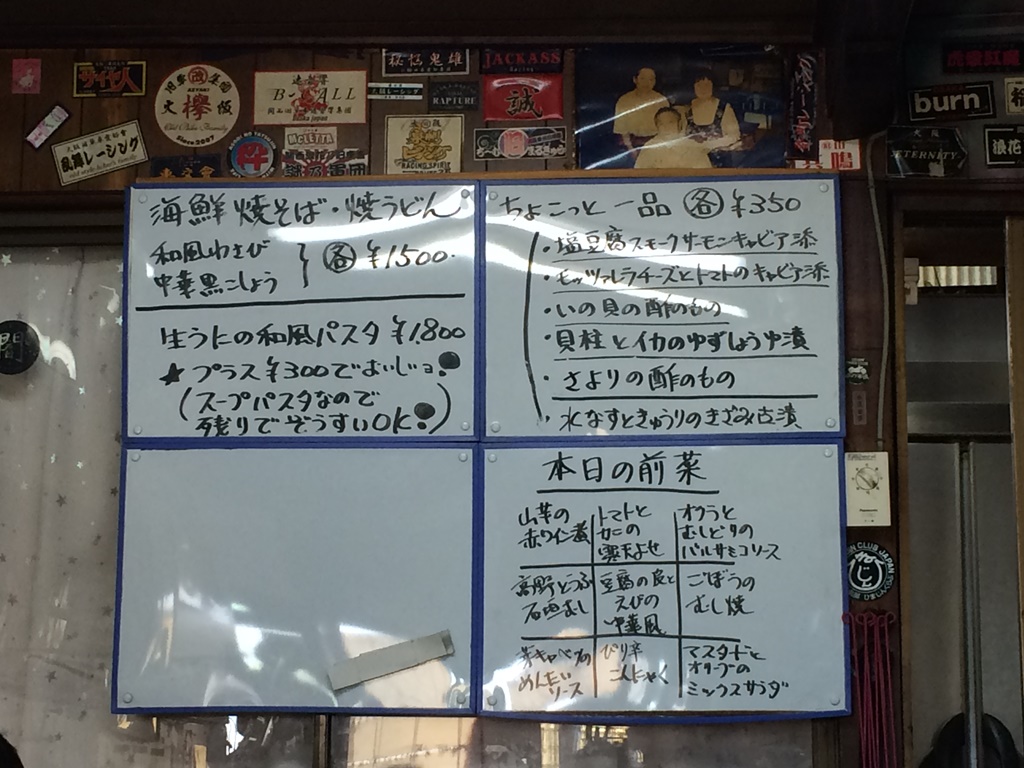 サイヤ人
JACKASS
誠
RAPTURE
B-ALL
RACING SPIRIT
乱舞レーシング
Since 2007
burn
ETERNITY
浪花
海鮮焼そば・焼うどん
和風わさび
中華黒こしょう
各 ¥1500.
生うにの和風パスタ ¥1.800
★プラス¥300でぞうじょ!
(スープパスタなので
残りでぞうすいOK!)
ちょこっと一品 各 ¥350
・塩豆腐スモークサーモンキャビア添
・モッツァレラチーズとトマトのキャビア添
・いの貝の酢のもの
・貝柱とイカのゆずしょうゆ漬
・さよりの酢のもの
・水なすときゅうりのきざみ古漬
本日の前菜
山芋の
赤ワイン漬
トマトと
カニの
寒天よせ
オクラと
むしどりの
バルサミコソース
高野とうふ
石垣むし
豆腐の皮と
えびの
中華風
ごぼうの
むし焼
芽キャベツの
めんたい
ソース
ぴり辛
こんにゃく
マスタードと
オリーブの
ミックスサラダ
Panasonic